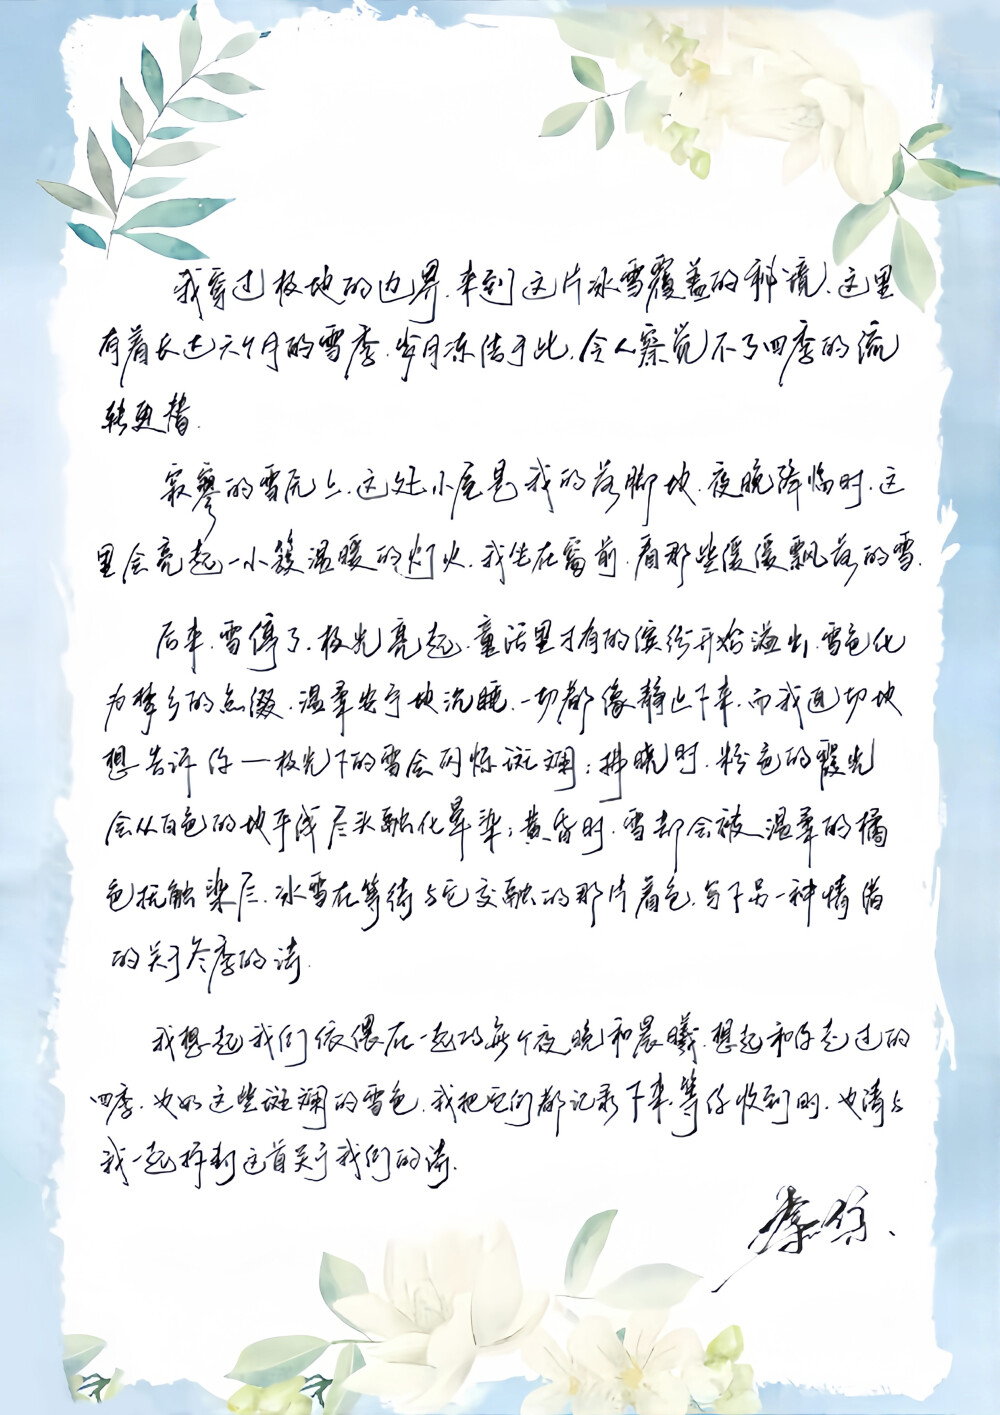 我穿过极地的边界，来到这片冰雪覆盖的秘境，这里
有着长达六个月的雪季，岁月冻结于此，令人察觉不了四季的流
转更替.
寂寥的雪原上，这处小屋是我的落脚地，夜晚降临时，这
里会亮起一小簇温暖的灯火，我坐在窗前，看那些缓缓飘落的雪.
后来，雪停了，极光亮起，童话里才有的缤纷开始溢出，雪色化
为梦乡的点缀，温柔安宁地沉睡，一切都像静止下来，而我迫切地
想告诉你——极光下的雪会闪烁斑斓；拂晓时，粉色的霞光
会从白色的地平线尽头融化晕染；黄昏时，雪却会被温柔的橘
色抚触染尽，冰雪在等待与它交融的那片着色，写下另一种情谐
的关于冬季的诗.
我想起我们依偎在一起的每个夜晚和晨曦，想起和你走过的
四季，也如这些斑斓的雪色，我把它们都记录下来，等你收到时，也请与
我一起拆封这首关于我们的诗.